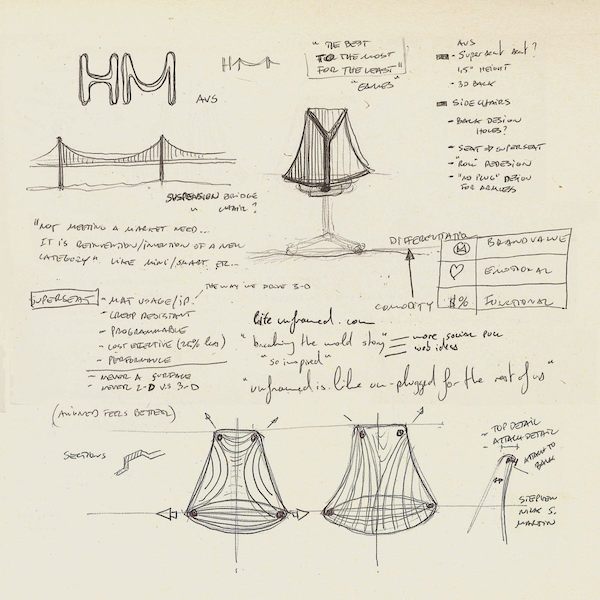 HM
HM
AVS
"THE BEST
TO THE MOST
FOR THE LEAST"
"EAMES"
AVS
- SUPERSEAT SEAT?
1,5" HEIGHT
- 3D BACK
SIDE CHAIRS
- BACK DESIGN
HOLES?
- SEAT → SUPERSEAT
- "ROLL" REDESIGN
- "NO PLUG" DESIGN
FOR ARMLESS
SUSPENSION BRIDGE
" CHAIR?
"NOT MEETING A MARKET NEED...
IT IS REINVENTION/INVENTION OF A NEW
CATEGORY" LIKE MINI/SMART ETC...
DIFFERENTIATION
BRAND VALUE
EMOTIONAL
$% FUNCTIONAL
COMODITY
THE WAY WE DRIVE 3-D
SUPERSEAT - MAT USAGE/IP!
- CREEP RESISTANT
- PROGRAMMABLE
- COST EFFECTIVE (25% less)
- PERFORMANCE
- NEVER A SURFACE
- NEVER 2-D VS 3-D
life unframed.com
"breaking the mold story"
- more social puck
- web ideas
"so inspired"
"unframed is like un-plugged for the rest of us"
(ALIGNED FEELS BETTER)
SECTIONS
- TOP DETAIL
- ATTACH DETAIL
ATTACH TO
BACK
STEPHEN
NICK S.
MARTIN